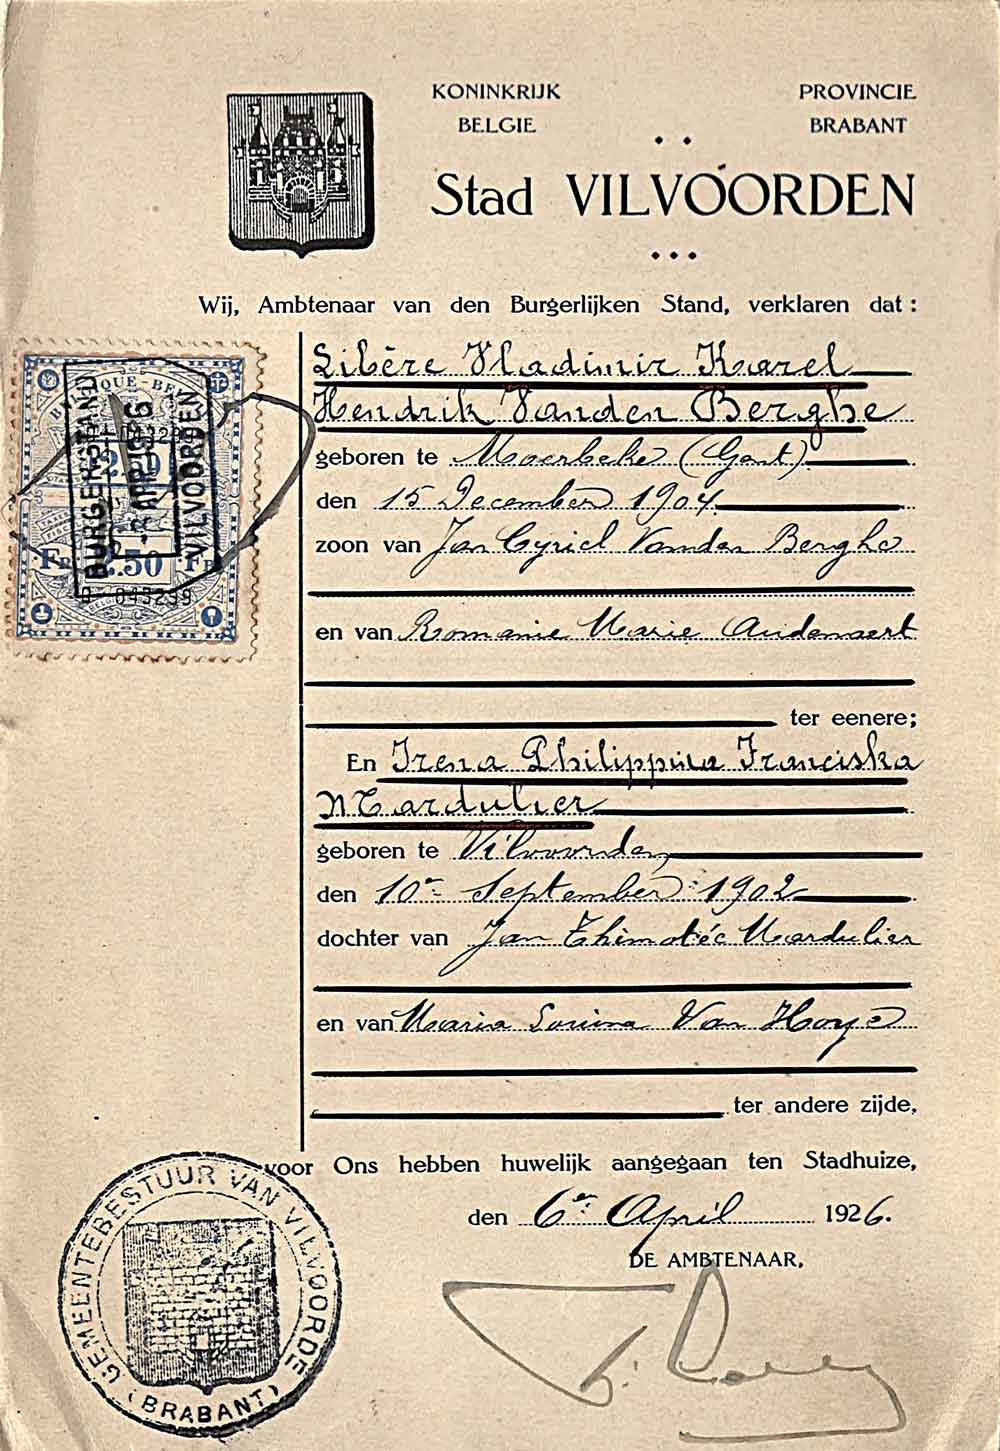 KONINKRIJK BELGIE
PROVINCIE BRABANT
Stad VILVOORDEN
Wij, Ambtenaar van den Burgerlijken Stand, verklaren dat :
Libère Vladimir Karel
Hendrik Vanden Berghe
geboren te Moerbeke (Gent)
den 15 December 1904
zoon van Jan Cyriel Vanden Berghe
en van Romanie Marie Audenaert
ter eenere;
En Irena Philippina Franciska
Mardulier
geboren te Vilvoorden
den 10e September 1902
dochter van Jan Thimotéc Mardulier
en van Maria Louisa Van Hoye
ter andere zijde,
voor Ons hebben huwelijk aangegaan ten Stadhuize,
den 6er April 1926.
DE AMBTENAAR,
BURGERSTAND
APR 1926
VILVOORDEN
FR 2.50 FR
043299
GEMEENTEBESTUUR VAN VILVOORDE
(BRABANT)